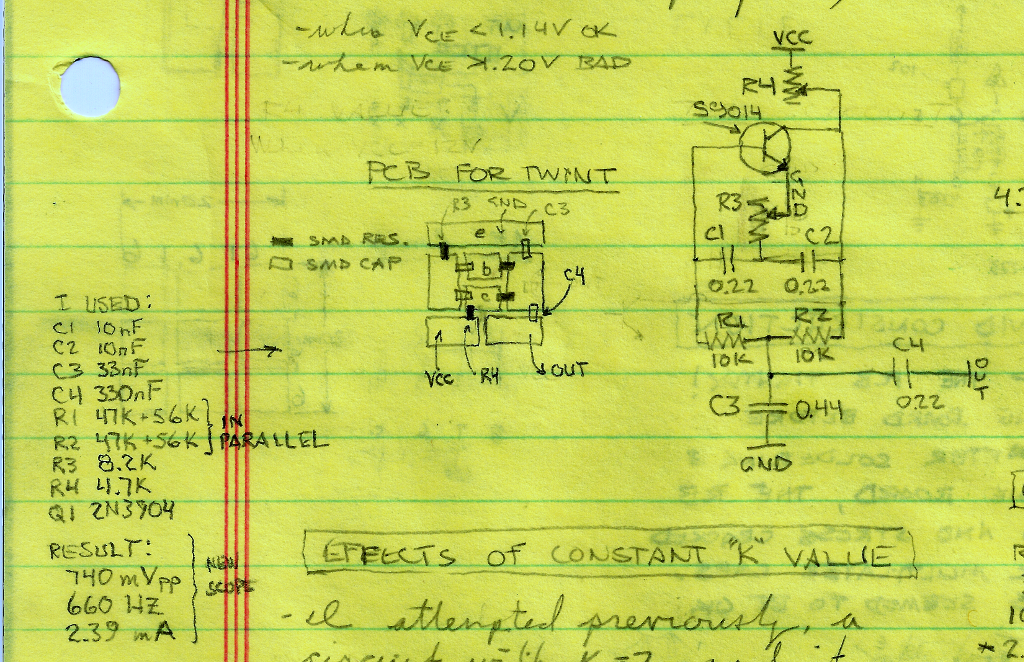 -when VCE < 1.14V OK
-when VCE > 1.20V BAD
PCB FOR TWINT
R3 GND C3
e
SMD RES.
SMD CAP
b
c
C4
VCC R4 OUT
I USED:
C1 10nF
C2 10nF
C3 33nF
C4 330nF
R1 47K+56K
R2 47K+56K
IN
PARALLEL
R3 8.2K
R4 4.7K
Q1 2N3904
RESULT:
740 mVpp
660 HZ
2.39 mA
NEW
SCOPE
VCC
R4
S9014
GND
R3
C1 C2
0.22 0.22
R1 R2
10K 10K
C4
0.22
OUT
C3 0.44
GND
4.
EFFECTS OF CONSTANT "K" VALUE
-I attempted previously, a